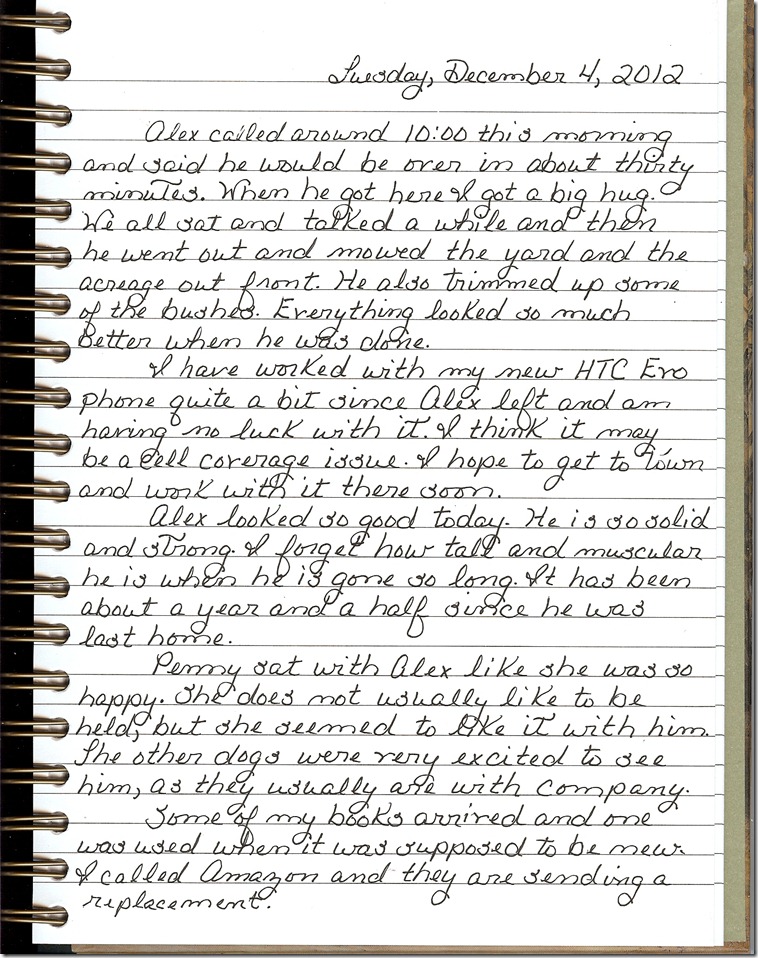 Tuesday, December 4, 2012
Alex called around 10:00 this morning
and said he would be over in about thirty
minutes. When he got here I got a big hug.
We all sat and talked a while and then
he went out and mowed the yard and the
acreage out front. He also trimmed up some
of the bushes. Everything looked so much
better when he was done.
I have worked with my new HTC Evo
phone quite a bit since Alex left and am
having no luck with it. I think it may
be a cell coverage issue. I hope to get to town
and work with it there soon.
Alex looked so good today. He is so solid
and strong. I forget how tall and muscular
he is when he is gone so long. It has been
about a year and a half since he was
last home.
Penny sat with Alex like she was so
happy. She does not usually like to be
held, but she seemed to like it with him.
The other dogs were very excited to see
him, as they usually are with company.
Some of my books arrived and one
was used when it was supposed to be new.
I called Amazon and they are sending a
replacement.